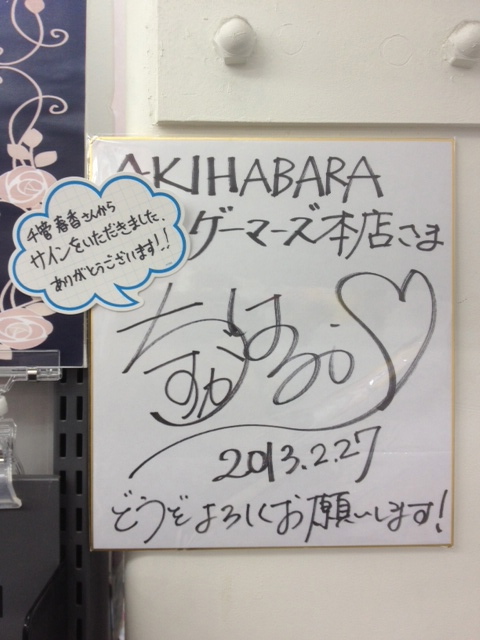 AKIHABARA
ゲーマーズ本店さま
千菅春香さんから
サインをいただきました。
ありがとうございます!!
ちすが はるか
2013.2.27
どうぞよろしくお願いします!